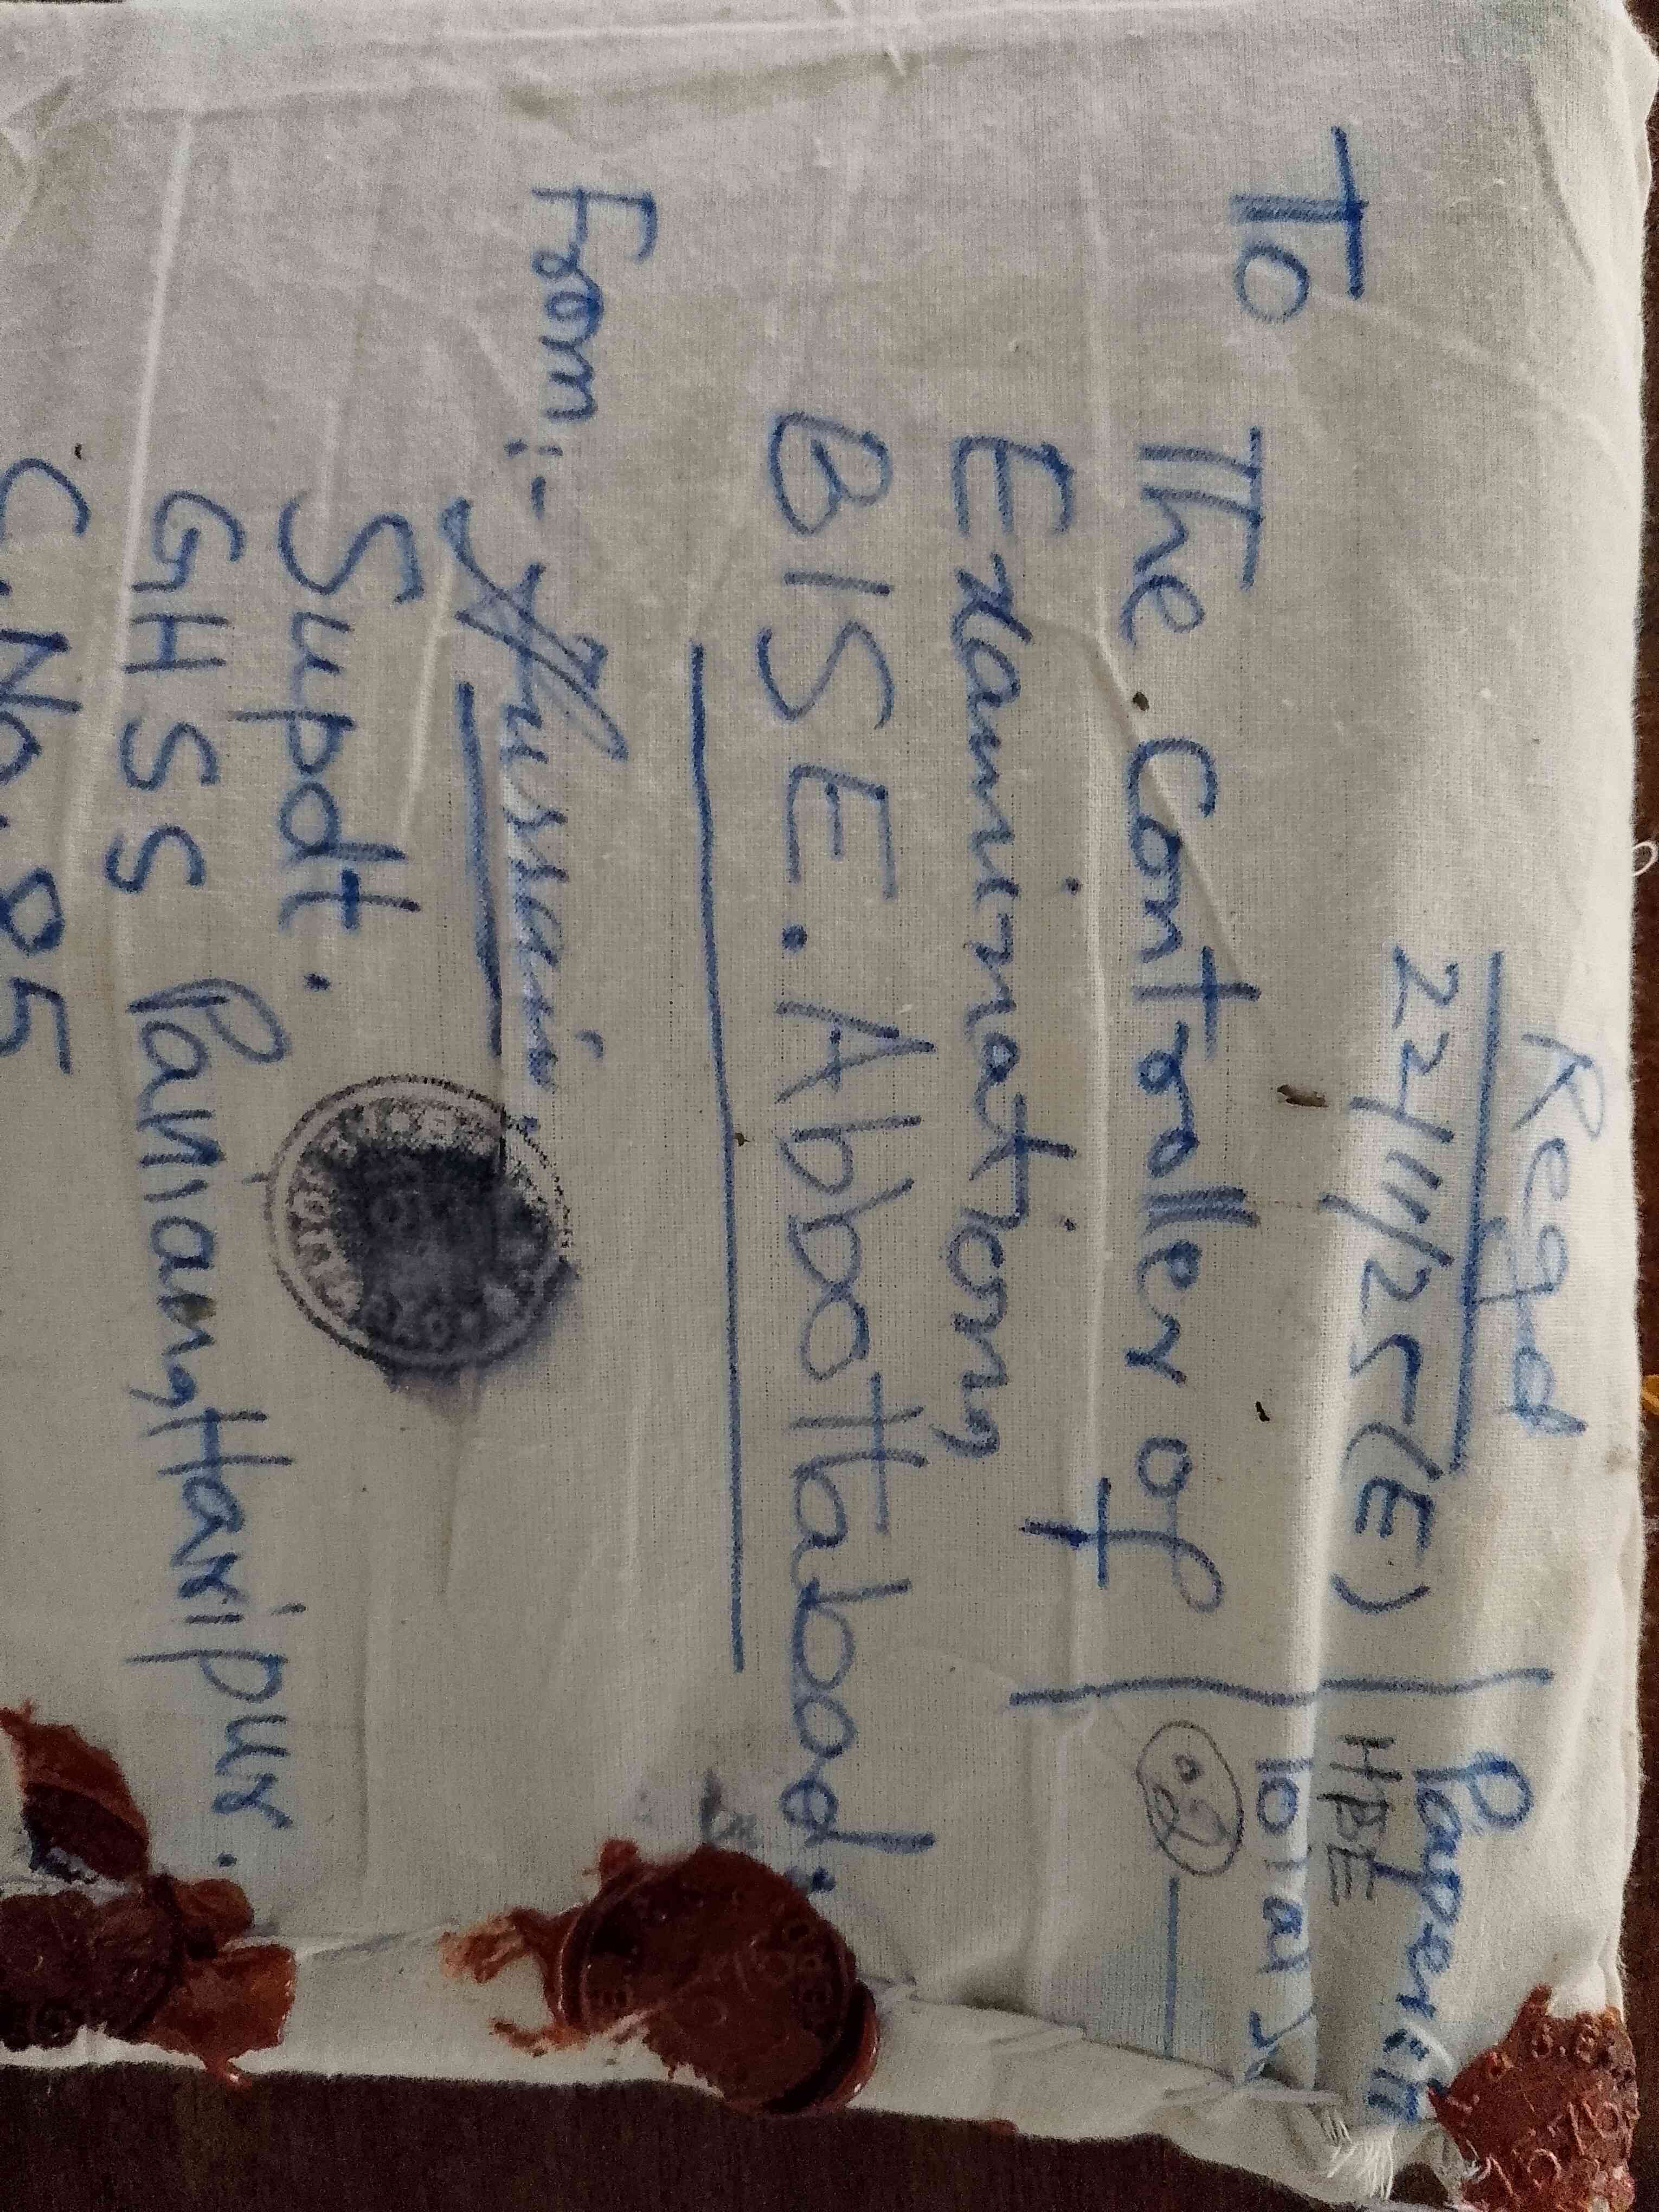 Regd
22/11/25(E)
Paper:it
HPE
Total
02
To
The Controller of
Examination,
BISE. Abbottabad.
From:-
Hussain.
Supdt.
GHSS Panian, Haripur.
C.No. 85